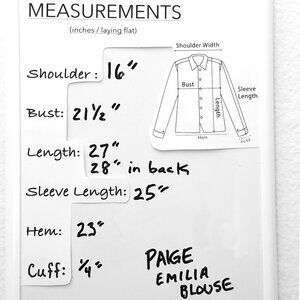 MEASUREMENTS
(inches / laying flat)
Shoulder Width
Shoulder: 16"
Bust
Sleeve Length
Length
Hem
Bust: 21½"
Length: 27"
28" in back
Sleeve Length: 25"
Hem: 23"
Cuff: ¼"
PAIGE
EMILIA
BLOUSE